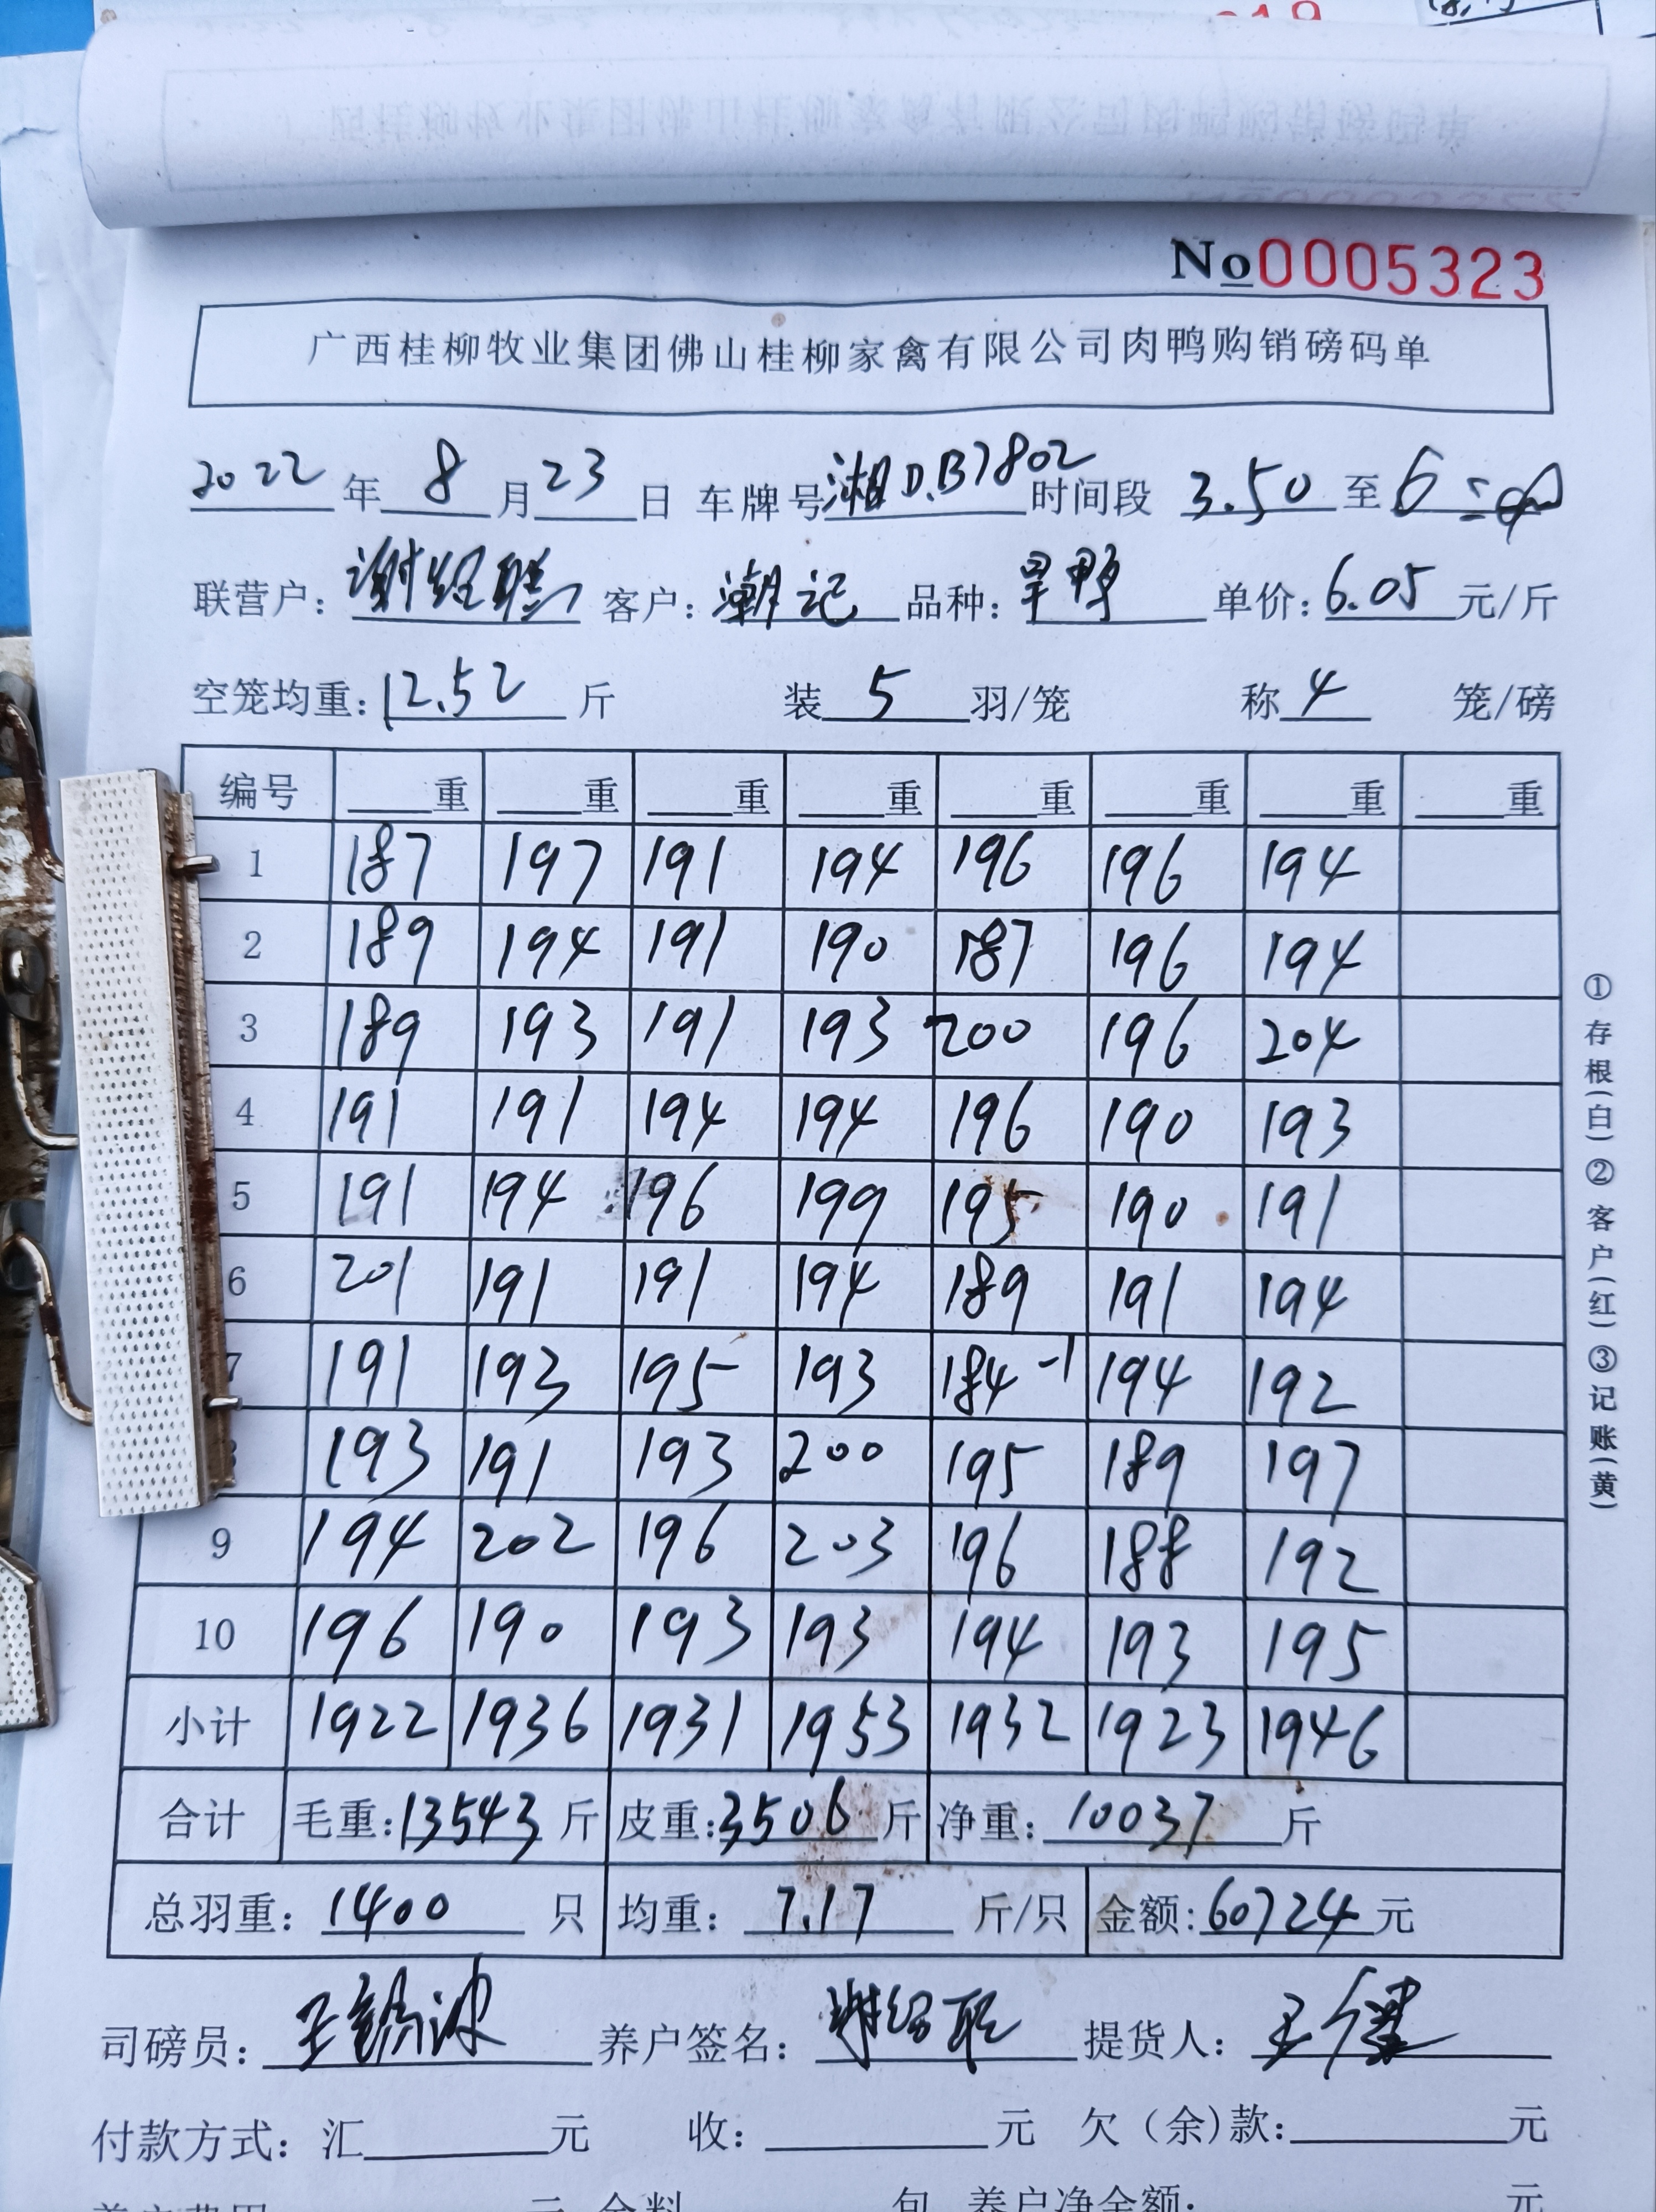 No 0005323
广西桂柳牧业集团佛山桂柳家禽有限公司肉鸭购销磅码单
2022 年 8 月 23 日 车牌号 湘D.B7802 时间段 3.50 至 6
联营户: 谢绍聪 客户: 潮记 品种: 旱鸭 单价: 6.05 元/斤
空笼均重: 12.52 斤 装 5 羽/笼 称 4 笼/磅
编号 重 重 重 重 重 重 重 重
1 187 197 191 194 196 196 194
2 189 194 191 190 187 196 194
3 189 193 191 193 200 196 204
4 191 191 194 194 196 190 193
5 191 194 196 199 195 190 191
6 201 191 191 194 189 191 194
7 191 193 195 193 184-1 194 192
193 191 193 200 195 189 197
9 194 202 196 203 196 188 192
10 196 190 193 193 194 193 195
小计 1922 1936 1931 1953 1932 1923 1946
合计 毛重: 13543 斤 皮重: 3506 斤 净重: 10037 斤
总羽重: 1400 只 均重: 7.17 斤/只 金额: 60724 元
司磅员: 养户签名: 提货人:
付款方式: 汇 元 收: 元 欠(余)款: 元
①存根(白)②客户(红)③记账(黄)